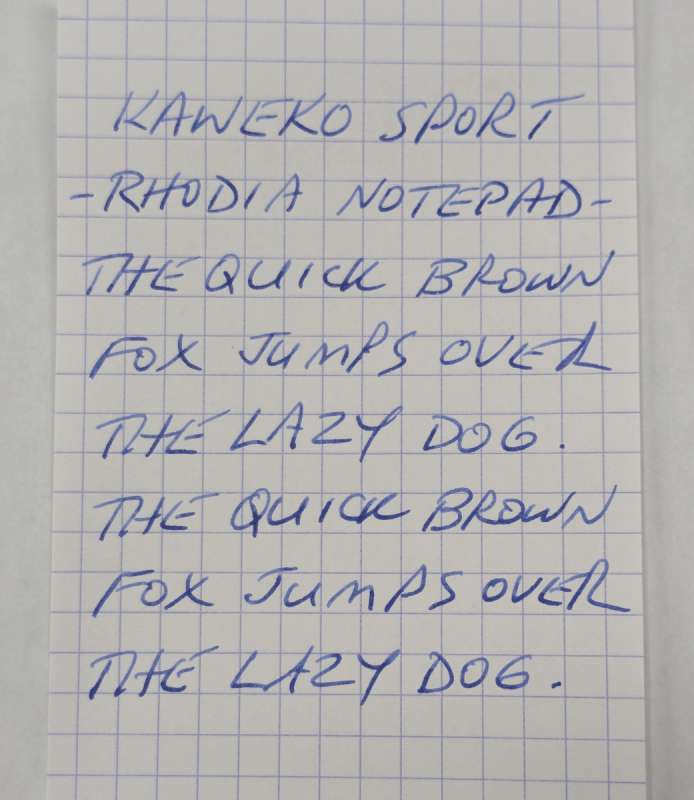 KAWEKO SPORT
-RHODIA NOTEPAD-
THE QUICK BROWN
FOX JUMPS OVER
THE LAZY DOG.
THE QUICK BROWN
FOX JUMPS OVER
THE LAZY DOG.